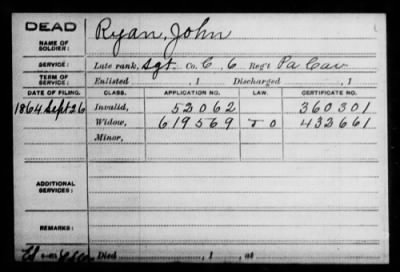 DEAD
NAME OF SOLDIER: Ryan, John
SERVICE: Late rank, Sgt. Co. C, 6 Reg't Pa Cav
TERM OF SERVICE: Enlisted , 1 Discharged , 1
DATE OF FILING. CLASS. APPLICATION NO. LAW. CERTIFICATE NO.
1864 Sept 26 Invalid, 52062 360301
Widow, 619569 J O 433661
Minor,
ADDITIONAL SERVICES:
REMARKS:
Died , 1 , at